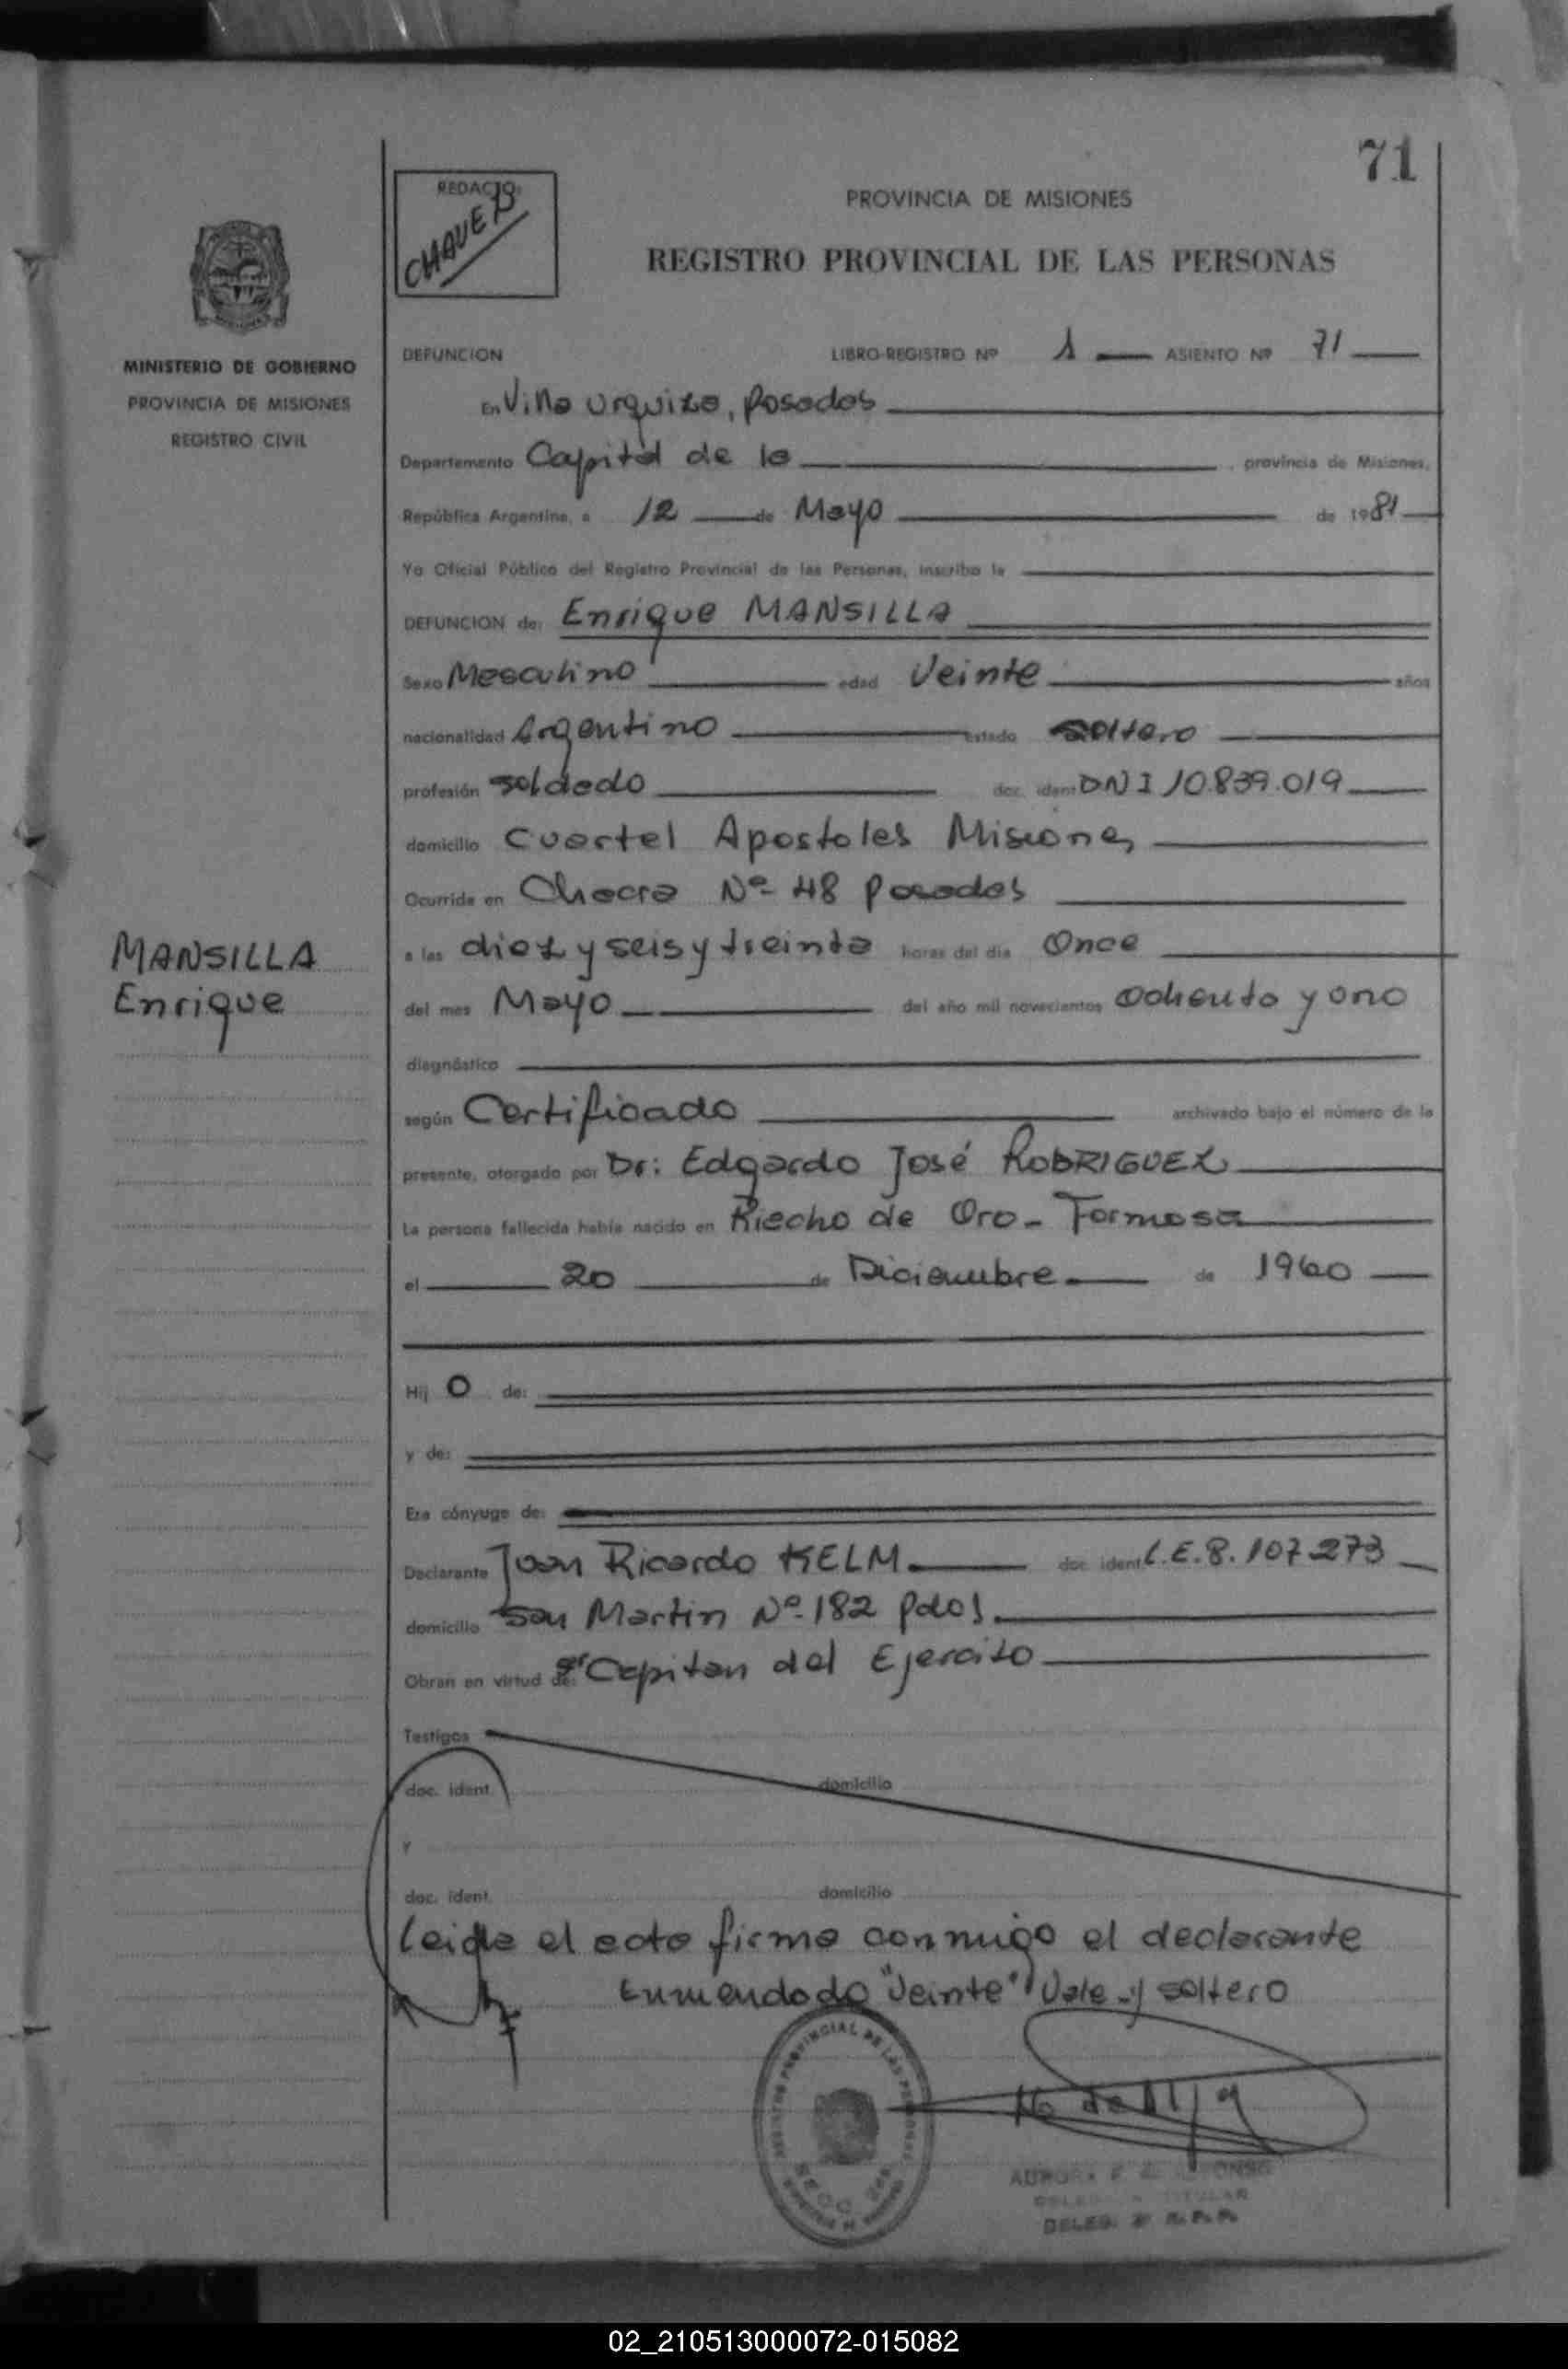 71
REDACTO:
CHAVEZ
PROVINCIA DE MISIONES
REGISTRO PROVINCIAL DE LAS PERSONAS
MINISTERIO DE GOBIERNO
PROVINCIA DE MISIONES
REGISTRO CIVIL
DEFUNCION LIBRO-REGISTRO Nº 1 ASIENTO Nº 71
En Villa Urquiza, Posadas
Departamento Capital de la , provincia de Misiones,
República Argentina, a 12 de Mayo de 1981
Yo Oficial Público del Registro Provincial de las Personas, inscribo la
DEFUNCION de: Enrique MANSILLA
Sexo Masculino edad Veinte años
nacionalidad Argentino Estado soltero
profesión soldado doc. ident. DNI 10.839.019
domicilio Cuartel Apostoles Misiones
Ocurrida en Chacra Nº 48 Posadas
a las diez y seis y treinta horas del día Once
del mes Mayo del año mil novecientos Ochenta y uno
MANSILLA
Enrique
diagnóstico
según Certificado archivado bajo el número de la
presente, otorgado por Dr: Edgardo José RODRIGUEZ
La persona fallecida había nacido en Riacho de Oro - Formosa
el 20 de Diciembre de 1960
Hij o de:
y de:
Era cónyuge de:
Declarante Juan Ricardo KELM doc. ident. L.E. 8.107.273
domicilio San Martin Nº 182 Pdas.
Obran en virtud de: ser Capitan del Ejercito
Testigos
doc. ident. domicilio
y
doc. ident. domicilio
Leida el acta firma conmigo el declarante
Enmendado "Veinte" Vale y soltero
REGISTRO PROVINCIAL DE LAS PERSONAS
DELEG.